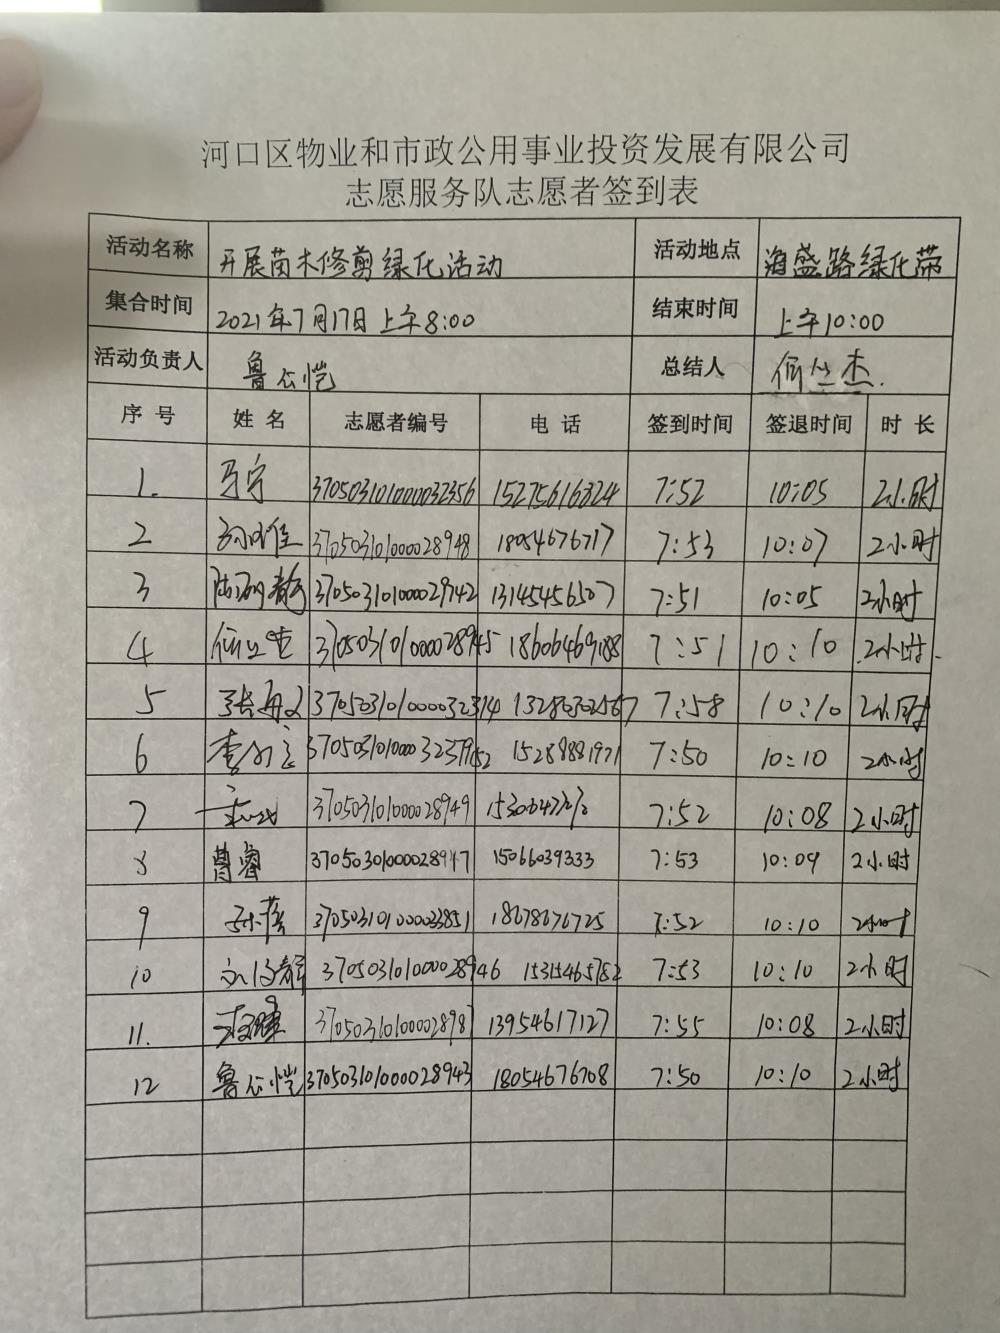 河口区物业和市政公用事业投资发展有限公司
志愿服务队志愿者签到表
活动名称 开展苗木修剪绿化活动 活动地点 海盛路绿化带
集合时间 2021年7月17日上午8:00 结束时间 上午10:00
活动负责人 鲁公恺 总结人
序号 姓名 志愿者编号 电话 签到时间 签退时间 时长
1. 马宁 370503101000032356 15275616324 7:52 10:05 2小时
2 370503101000028948 18054676717 7:53 10:07 2小时
3 370503101000029742 13145456507 7:51 10:05 2小时
4 370503101000028945 18606469188 7:51 10:10 2小时.
5 370503101000032314 13280302567 7:58 10:10 2小时
6 15289881971 7:50 10:10 2小时
7 370503101000028949 7:52 10:08 2小时
8 曹睿 370503101000028947 15066039333 7:53 10:09 2小时
9 孙蓓 370503101000033851 18678676725 7:52 10:10 2小时
10 370503101000028946 15315465782 7:53 10:10 2小时
11. 13954617127 7:55 10:08 2小时
12 鲁公恺 370503101000028943 18054676708 7:50 10:10 2小时